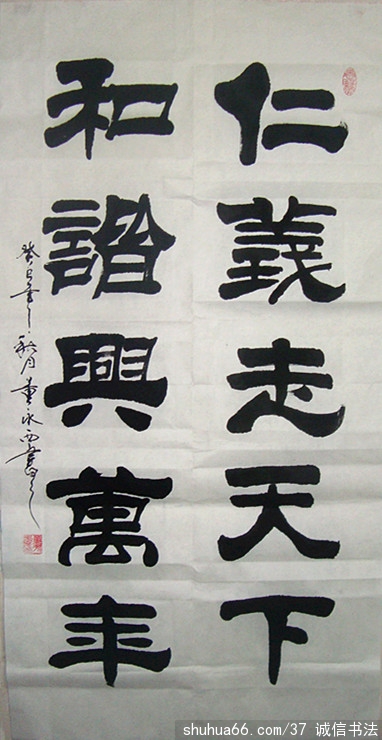 仁義走天下
和諧興萬年
癸巳年秋月董永西書
shuhua66.com/37 诚信书法